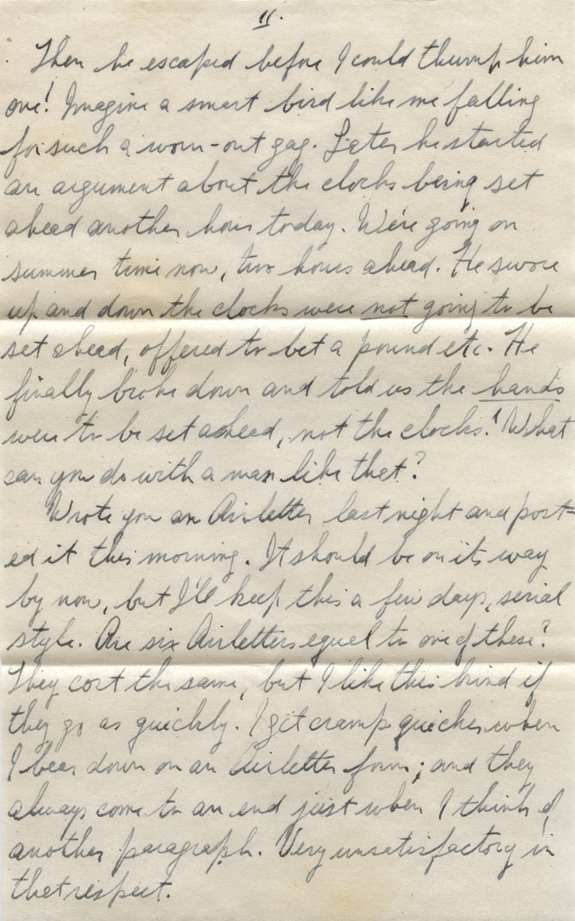 11.
Then he escaped before I could thump him
one! Imagine a smart bird like me falling
for such a worn-out gag. Later he started
an argument about the clocks being set
ahead another hour today. We're going on
summer time now, two hours ahead. He swore
up and down the clocks were not going to be
set ahead, offered to bet a pound etc. He
finally broke down and told us the hands
were to be set ahead, not the clocks! What
can you do with a man like that?
Wrote you an Airletter last night and post-
ed it this morning. It should be on its way
by now, but I'll keep this a few days, serial
style. Are six Airletters equal to one of these?
They cost the same, but I like this kind if
they go as quickly. I get cramp quicker when
I bear down on an Airletter form; and they
always come to an end just when I think of
another paragraph. Very unsatisfactory in
that respect.